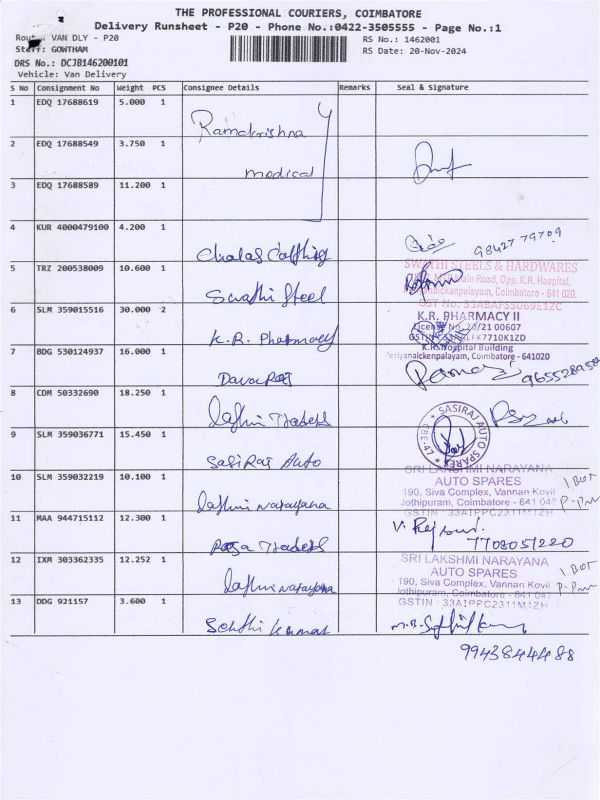 THE PROFESSIONAL COURIERS, COIMBATORE
Delivery Runsheet - P20 - Phone No.:0422-3505555 - Page No.:1
VAN DLY - P20 RS No.: 1462001
GOWTHAM RS Date: 20-Nov-2024
DRS No.: DCJB146200101
Vehicle: Van Delivery
S No Consignment No Weight PCS Consignee Details Remarks Seal & Signature
1 EDQ 17688619 5.000 1
Ramakrishna
2 EDQ 17688549 3.750 1
medical
3 EDQ 17688589 11.200 1
4 KUR 4000479100 4.200 1
98427 79709
5 TRZ 200538009 10.600 1 SWATHI STEELS & HARDWARES
Main Road, Opp. K.R. Hospital,
Coimbatore - 641 020.
Swathi Steel
6 SLM 359015516 30.000 2
K.R. PHARMACY II
K.R. Pharmacy
K.R. Hospital Building
7 BDG 530124937 16.000 1
Periyanaickenpalayam, Coimbatore - 641020
8 CDM 50332690 18.250 1
Traders
SASIRAJ AUTO SPARES
9 SLM 359036771 15.450 1
Sasiraj Auto
SRI LAKSHMI NARAYANA
AUTO SPARES
10 SLM 359032219 10.100 1
190, Siva Complex, Vannan Kovil
Jothipuram, Coimbatore - 641 047
GSTIN : 33AIPPC2311M1ZH
narayana
11 MAA 944715112 12.300 1
Traders
7708051220
12 IXM 303362335 12.252 1
SRI LAKSHMI NARAYANA
AUTO SPARES
190, Siva Complex, Vannan Kovil
Jothipuram, Coimbatore - 641 047
GSTIN : 33AIPPC2311M1ZH
narayana
13 DDG 921157 3.600 1
9943844488